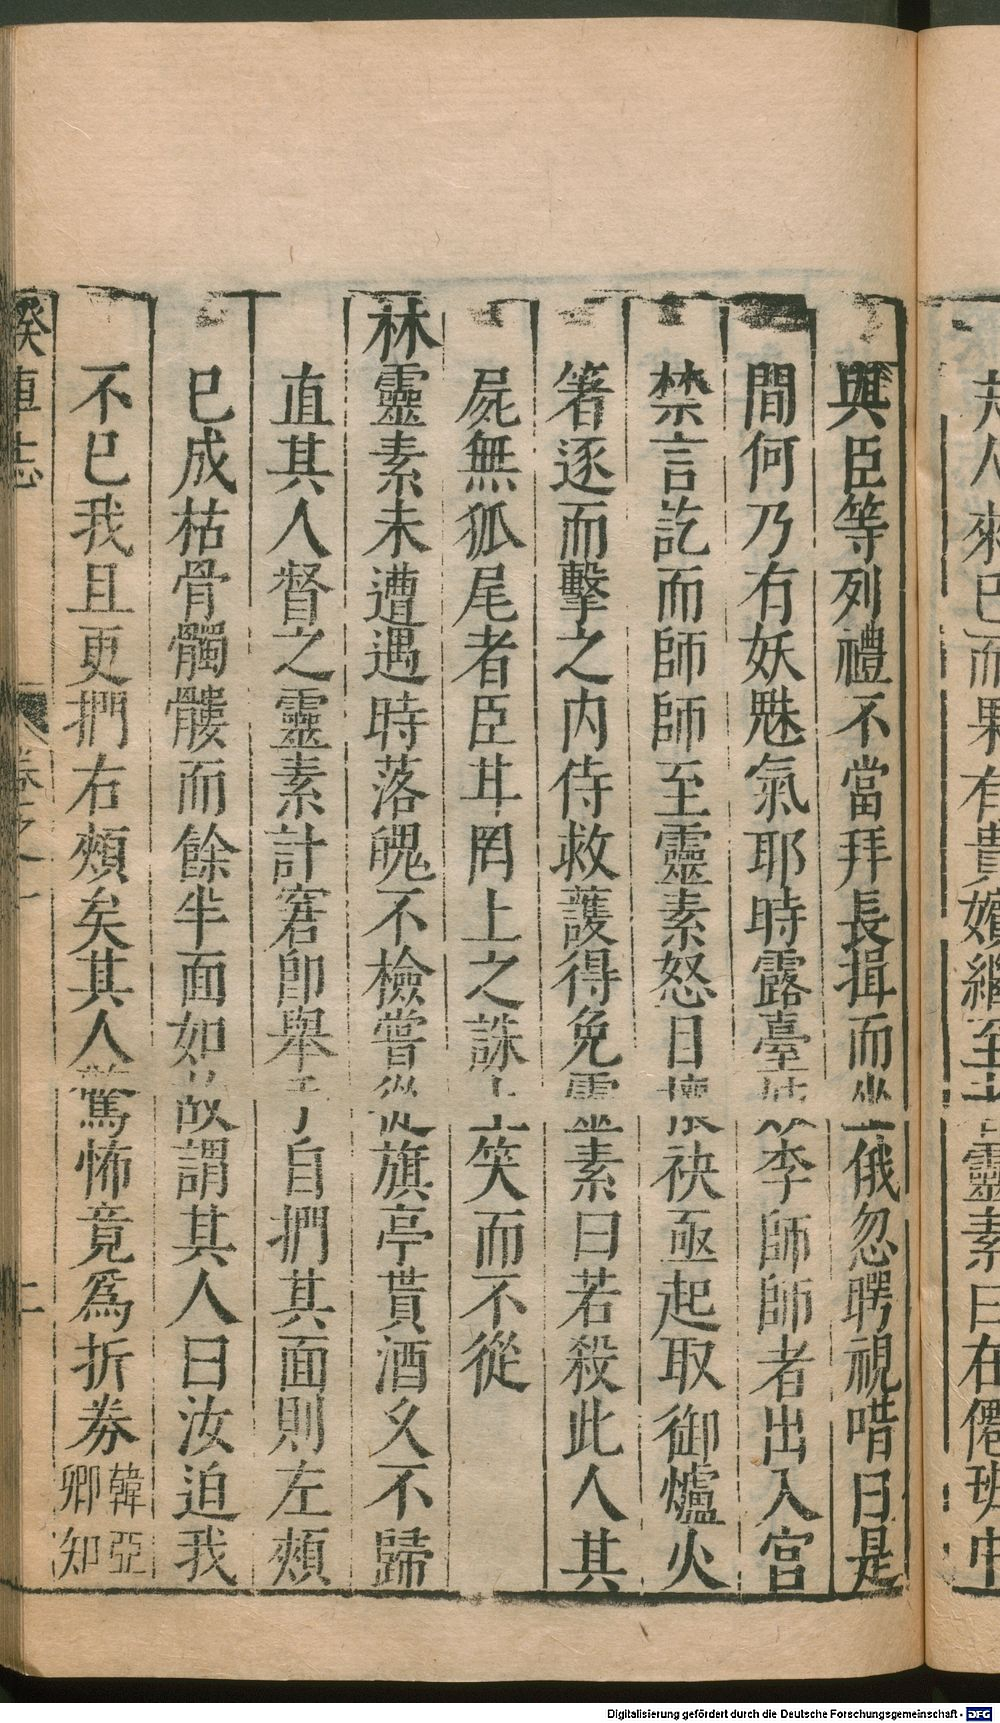 人來已而果有貴嬪繼至者靈素曰在僊班中
與臣等列禮不當拜長揖而坐俄忽睜視嘻曰是
間何乃有妖魅氣耶時露臺妓李師師者出入宫
禁言訖而師師至靈素怒目攘袂亟起取御爐火
箸逐而擊之内侍救護得免靈素曰若殺此人其
屍無狐尾者臣甘罔上之誅上笑而不從
林靈素未遭遇時落魄不檢嘗從旗亭貰酒久不歸
直其人督之靈素計窘卽舉手自捫其面則左頰
已成枯骨髑髏而餘半面如故謂其人曰汝迫我
不已我且更捫右頰矣其人驚怖竟爲折券韓亞卿知
睽車志 卷之一 二
Digitalisierung gefördert durch die Deutsche Forschungsgemeinschaft - DFG